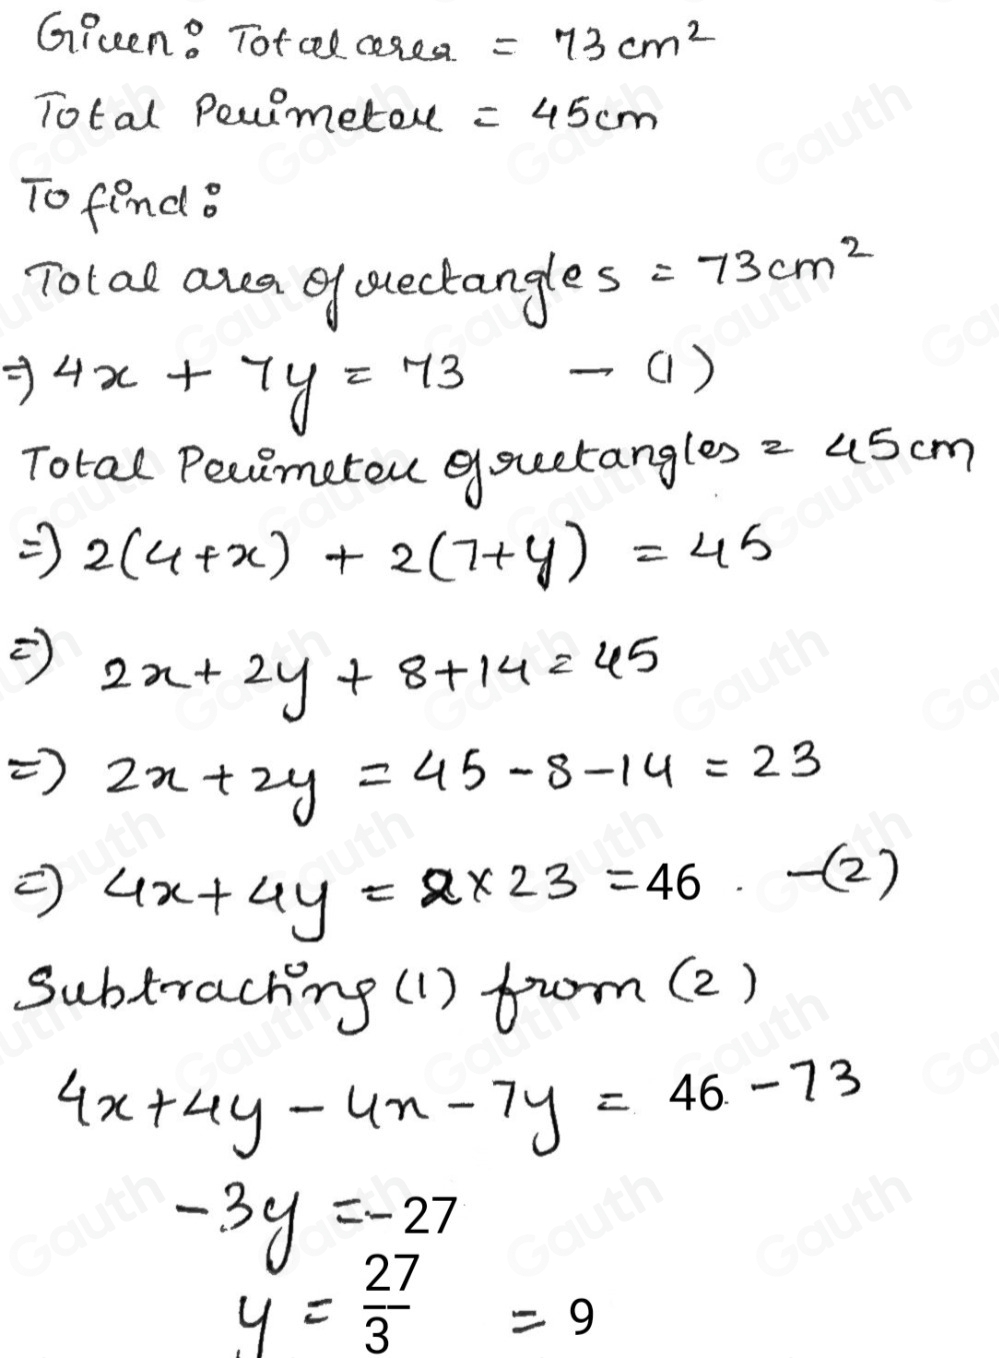 Given: Total area = 73 cm²
Total Perimeter = 45cm
To find:
Total area of rectangles = 73cm²
⇒ 4x + 7y = 73 — (1)
Total Perimeter of rectangles = 45cm
⇒ 2(4+x) + 2(7+y) = 45
⇒ 2x + 2y + 8+14 = 45
⇒ 2x + 2y = 45 - 8 - 14 = 23
⇒ 4x + 4y = 2 × 23 = 46 . —(2)
Subtracting (1) from (2)
4x + 4y - 4x - 7y = 46 - 73
-3y = -27
y = 27/3 = 9
Gauth